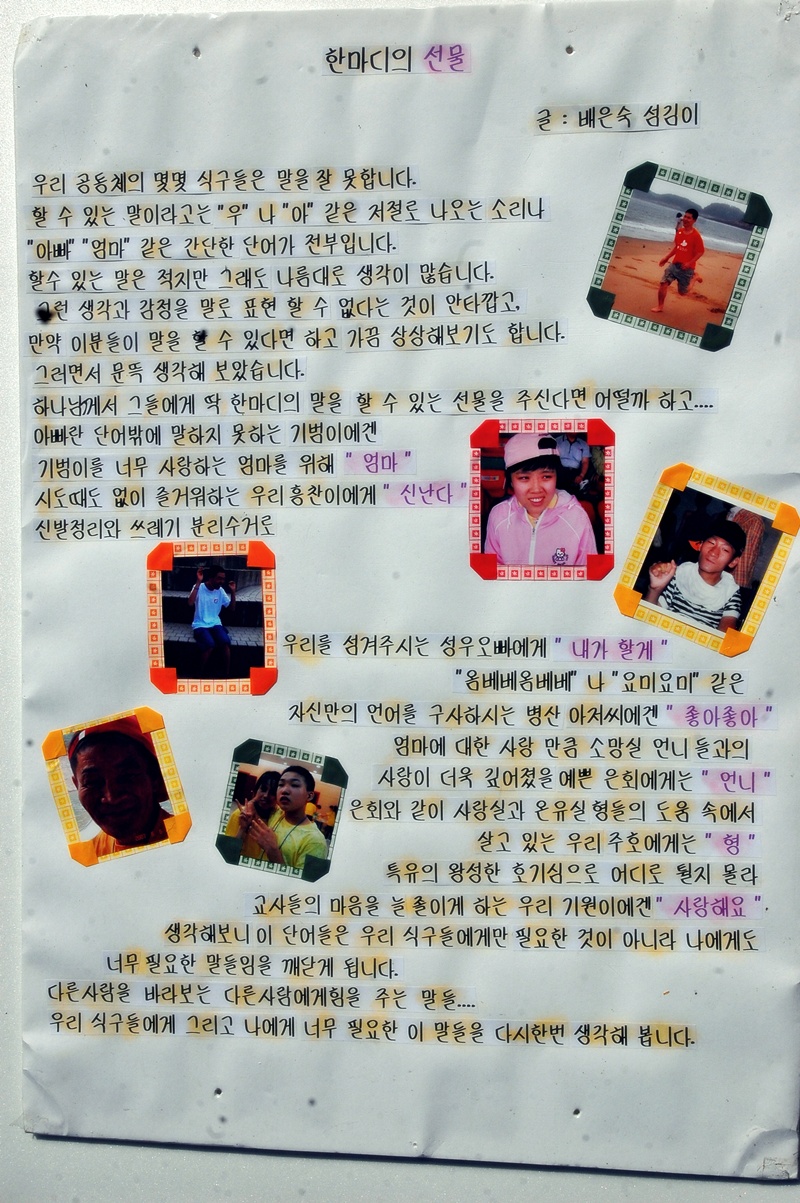 한마디의 선물
글 : 배은숙 섬김이
우리 공동체의 몇몇 식구들은 말을 잘 못합니다.
할 수 있는 말이라고는 "우" 나 "아" 같은 저절로 나오는 소리나
"아빠" "엄마" 같은 간단한 단어가 전부입니다.
할수 있는 말은 적지만 그래도 나름대로 생각이 많습니다.
그런 생각과 감정을 말로 표현 할 수 없다는 것이 안타깝고,
만약 이분들이 말을 할 수 있다면 하고 가끔 상상해보기도 합니다.
그러면서 문뜩 생각해 보았습니다.
하나님께서 그들에게 딱 한마디의 말을 할 수 있는 선물을 주신다면 어떨까 하고....
아빠란 단어밖에 말하지 못하는 기범이에겐
기범이를 너무 사랑하는 엄마를 위해 " 엄마 "
시도때도 없이 즐거워하는 우리 흥찬이에게 " 신난다 "
신발정리와 쓰레기 분리수거로
우리를 섬겨주시는 성우오빠에게 " 내가 할게 "
"옴베베옴베베" 나 "요미요미" 같은
자신만의 언어를 구사하시는 병산 아저씨에겐 " 좋아좋아 "
엄마에 대한 사랑 만큼 소망실 언니들과의
사랑이 더욱 깊어졌을 예쁜 은회에게는 " 언니 "
은회와 같이 사랑실과 온유실 형들의 도움 속에서
살고 있는 우리 주호에게는 " 형 "
특유의 왕성한 호기심으로 어디로 튈지 몰라
교사들의 마음을 늘 졸이게 하는 우리 기원이에겐 " 사랑해요 ".
생각해보니 이 단어들은 우리 식구들에게만 필요한 것이 아니라 나에게도
너무 필요한 말들임을 깨닫게 됩니다.
다른사람을 바라보는 다른사람에게힘을 주는 말들....
우리 식구들에게 그리고 나에게 너무 필요한 이 말들을 다시한번 생각해 봅니다.